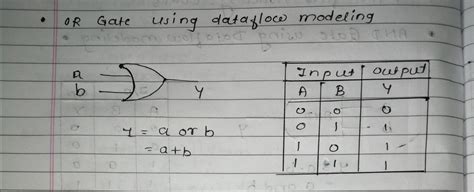 • OR Gate using dataflow modeling
a
b
Y
Y = a or b
= a+b
Input Output
A B Y
0 0 0
0 1 1
1 0 1
1 1 1